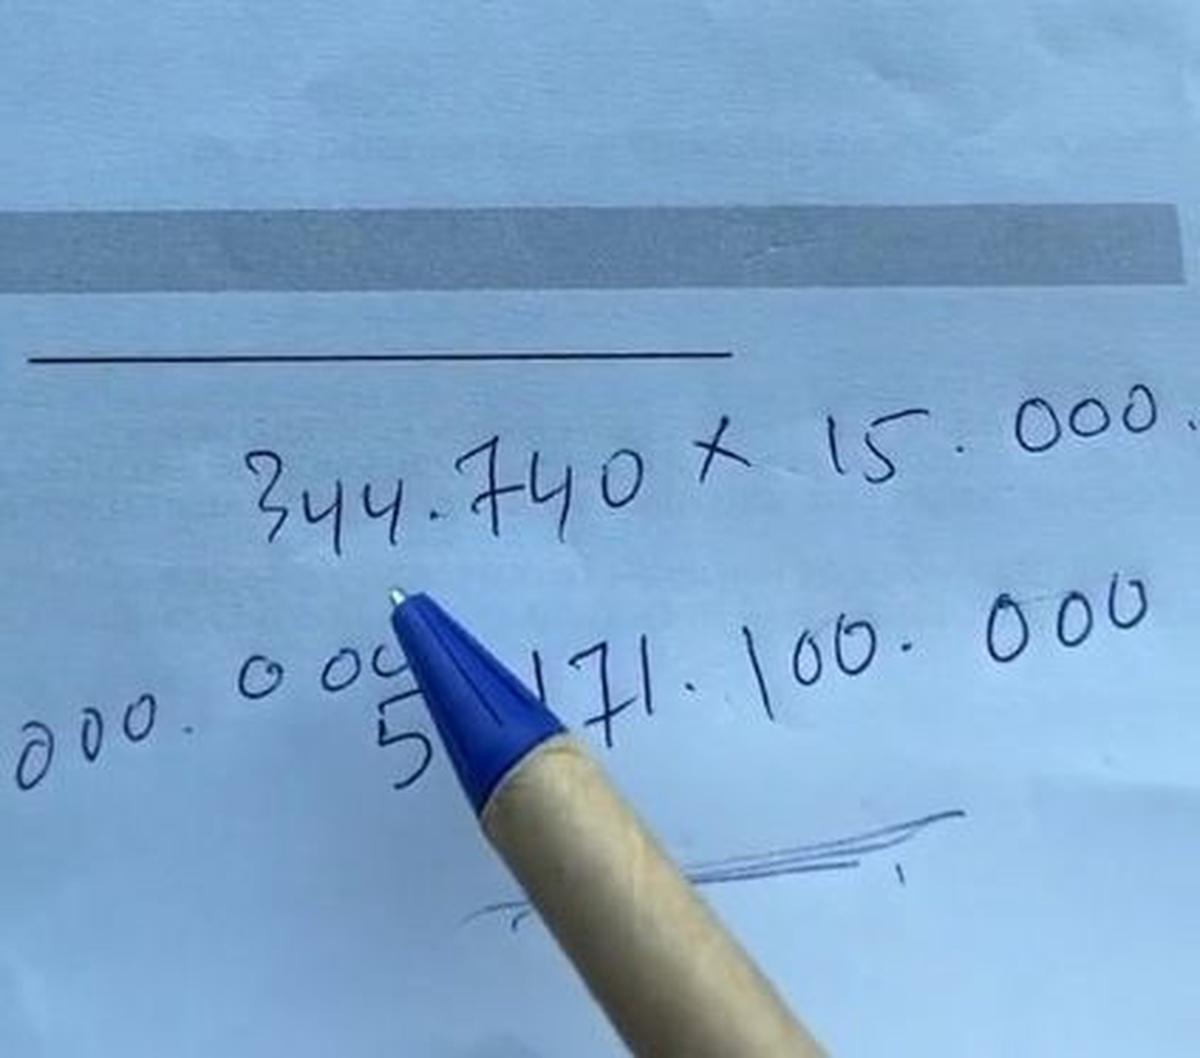 344.740 x 15.000.
000. 000
5 171.100.000